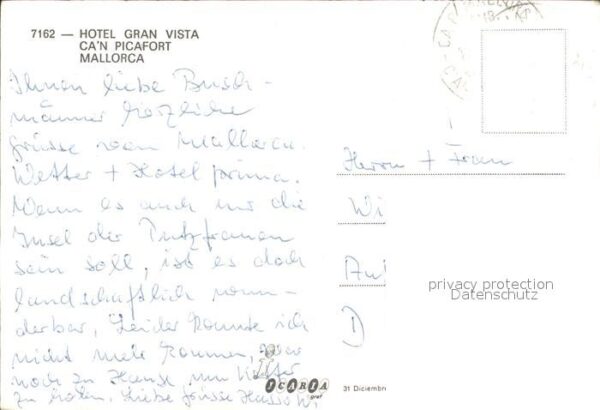 7162 — HOTEL GRAN VISTA
CA'N PICAFORT
MALLORCA
Ihnen liebe Busch-
männer herzliche
Grüsse von Mallorca.
Wetter + Hotel prima.
Wenn es auch nur die
Insel der Putzfrauen
sein soll, ist es doch
landschaftlich wun-
derbar. Leider konnte ich
nicht mehr kommen, war
noch zu Hause um Koffer
zu holen. Liebe Grüsse
Herrn + Frau
Wi
D
privacy protection
Datenschutz
ICARIA
graf
31 Diciembre